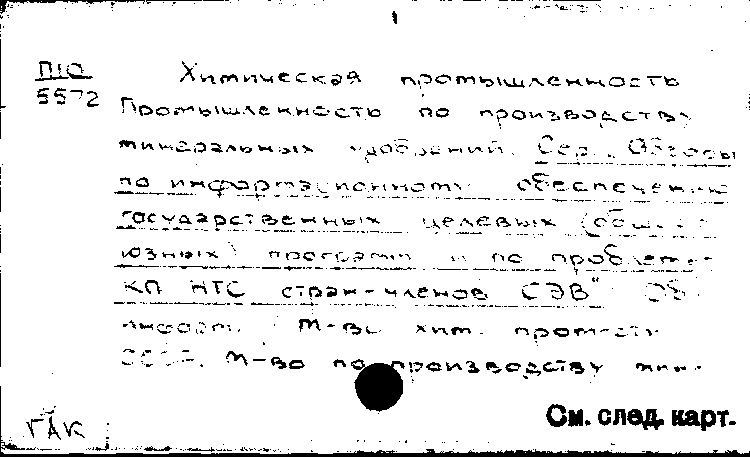 П10 Химическая промышленность
5572 Промышленность по производству
минеральных удобрений. Сер. Обзоры
по информационному обеспечению
государственных целевых (общ
юзных) программ и по проблемам
КП НТС стран-членов СЭВ" Об.
информ. М-во хим. пром-сти
СССР. М-во по производству мин.
См. след. карт.
ГАК